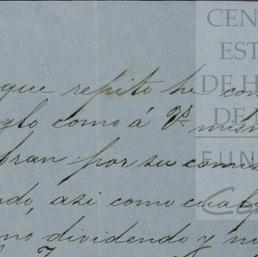 CEN
EST
DE H
DE
FUN
que repito he con
glo como á Vs. mism
bran por su comis
ndo, asi como cualq
no dividendo y n